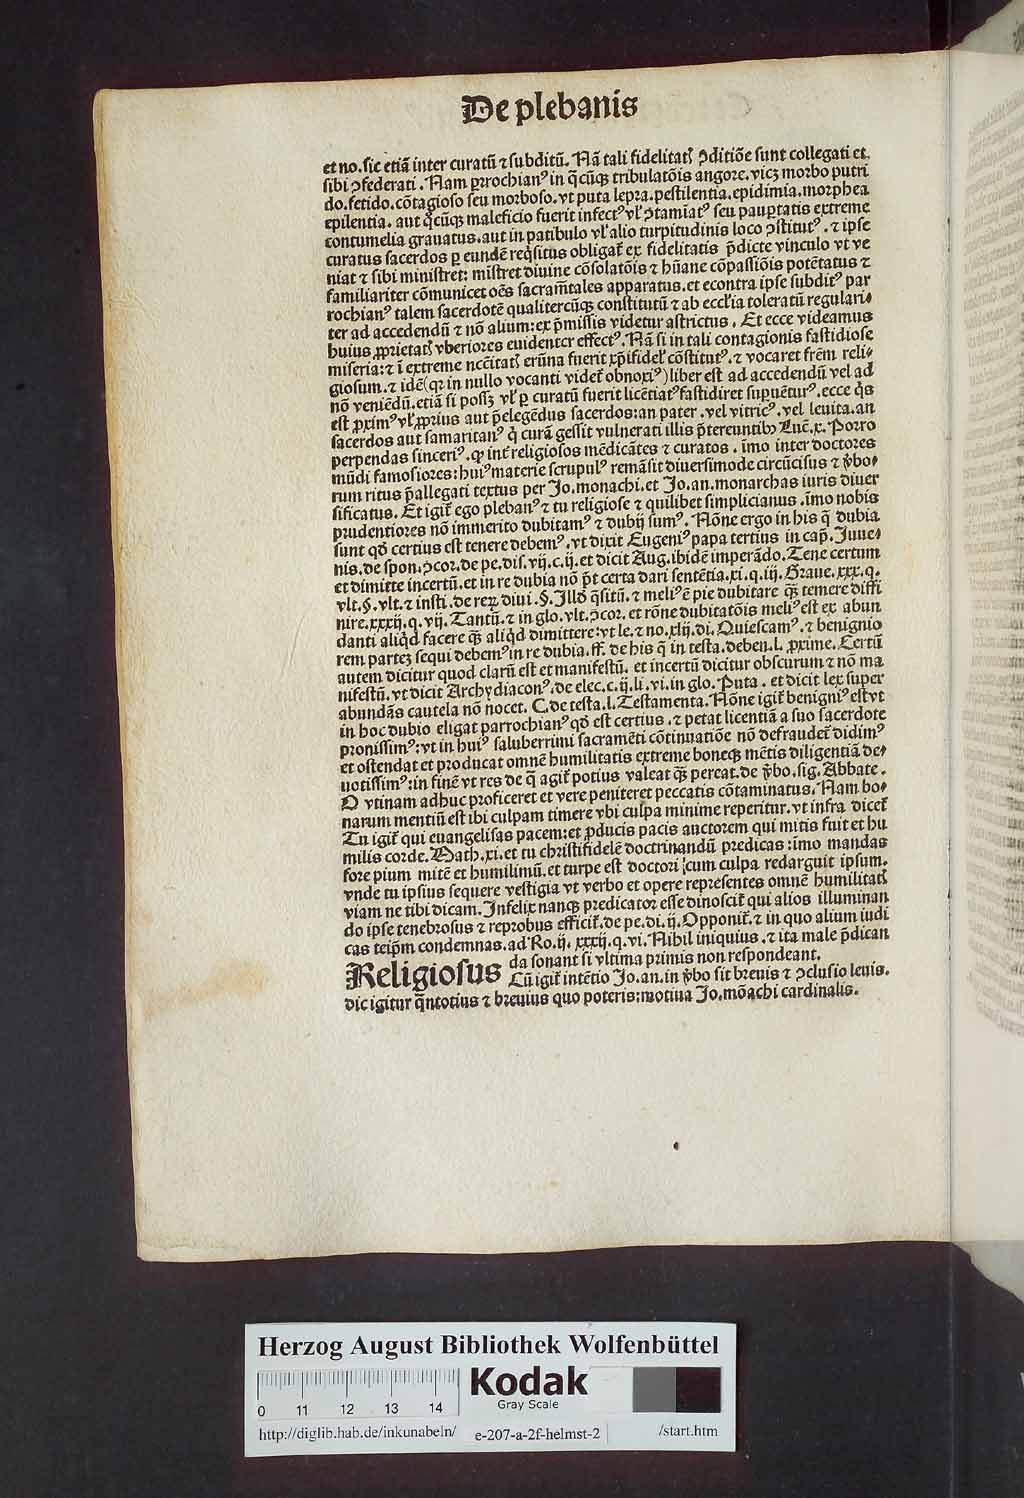 De plebanis
et no. sic etiã inter curatũ ⁊ subditũ. Nã tali fidelitatꝭ ꝯditiõe sunt collegati et.
sibi ꝯfederati. Nam ꝑrochianꝰ in q̃cũqꝫ tribulatõis angore. vicꝫ morbo putri
do. fetido. cõtagioso seu morboso. vt puta lepra. pestilentia. epidimia. morphea
epilentia. aut q̃cũqꝫ maleficio fuerit infectꝰ vl̕ ꝯtamiatꝰ seu pauꝑtatis extreme
contumelia grauatus. aut in patibulo vl̕ alio turpitudinis loco ꝯstitutꝰ. ⁊ ipse
curatus sacerdos ꝑ eundẽ req̃situs obligat᷑ ex fidelitatis p̃dicte vinculo vt ve
niat ⁊ sibi ministret: mĩstret diuine cõsolatõis ⁊ hũane cõpassiõis potẽtatus ⁊
familiariter cõmunicet oẽs sacram̃tales apparatus. et econtra ipse subditꝰ par
rochianꝰ talem sacerdotẽ qualitercũqꝫ constitutũ ⁊ ab eccl̕ia toleratũ regulari⸗
ter ad accedendũ ⁊ nõ alium: ex p̃missis videtur astrictus. Et ecce videamus
huius ꝓprietatꝭ vberiores euidenter effectꝰ. Nã si in tali contagionis fastidiose
miseria: ⁊ ĩ extreme ncẽitatꝭ erũna fuerit xp̃ifidel̕ cõstitutꝰ. ⁊ vocaret frẽm reli⸗
giosum. ⁊ idẽ (qꝛ in nullo vocanti videt᷑ obnoxiꝰ) liber est ad accedendũ vel ad
nõ veniẽdũ. etiã si possꝫ vl̕ ꝑ curatũ fuerit licẽtiatꝰ fastidiret supuẽturꝰ. ecce q̃s
est ꝓximꝰ vl̕ ꝓprius aut p̃elegẽdus sacerdos: an pater. vel vitricꝰ. vel leuita. an
sacerdos aut samaritanꝰ q̇ curã gessit vulnerati illis p̃tereuntibꝫ Luc̃. x. Porro
perpendas sinceriꝰ. qꝫ int᷑ religiosos mẽdicãtes ⁊ curatos. ĩmo inter doctores
mũdi famosiores: huiꝰ materie scrupulꝰ remãsit diuersimode circũcisus ⁊ v̑bo⸗
rum ritus p̃allegati textus per Jo. monachi. et Jo. an. monarchas iuris diuer
sificatus. Et igit᷑ ego plebanꝰ ⁊ tu religiose ⁊ quilibet simplicianus. ĩmo nobis
prudentiores nõ immerito dubitamꝰ ⁊ dubij sumꝰ. Nõne ergo in his q̃ dubia
sunt qđ certius est tenere debemꝰ. vt dixit Eugeniꝰ papa tertius in cap̃. Juue⸗
nis. de spon. ꝯcor. de pe. dis. vij. c. ij. et dicit Aug. ibidẽ imperãdo. Tene certum
et dimitte incertũ. et in re dubia nõ p̃t certa dari sentẽtia. xi. q. iij. Graue. xxx. q.
vlt. §. vlt. ⁊ insti. de reꝝ diui. §. Illđ q̃sitũ. ⁊ meliꝰ ẽ pie dubitare qꝫ̃ temere diffi
nire. xxxij. q. vij. Tantũ. ⁊ in glo. vlt. ꝯcor. et rõne dubitatõis meliꝰ est ex abun
danti aliq̇d facere qꝫ̃ aliq̇d dimittere: vt le. ⁊ no. xlij. di. Quiescamꝰ. ⁊ benignio
rem partez sequi debemꝰ in re dubia. ff. de his q̃ in testa. deben. l. ꝓxime. Certũ
autem dicitur quod clarũ est et manifestũ. et incertũ dicitur obscurum ⁊ nõ ma
nifestũ. vt dicit Archydiaconꝰ. de elec. c. ij. li. vi. in glo. Puta. et dicit lex super
abundãs cautela nõ nocet. C. de testa. l. Testamenta. Nõne igit᷑ benigniꝰ est vt
in hoc dubio eligat parrochianꝰ qđ est certius. ⁊ petat licentiã a suo sacerdote
pronissimꝰ: vt in huiꝰ saluberrimi sacramẽti cõtinuatiõe nõ defraudet᷑ didimꝰ
et ostendat et producat omnẽ humilitatis extreme boneqꝫ mẽtis diligentiã de⸗
uotissimꝰ: in finẽ vt res de q̃ agit᷑ potius valeat qꝫ̃ pereat. de v̑bo. sig. Abbate.
O vtinam adhuc proficeret et vere peniteret peccatis cõtaminatus. Nam bo⸗
narum mentiũ est ibi culpam timere vbi culpa minime reperitur. vt infra dicet᷑
Tu igit᷑ qui euangelisas pacem: et ꝓducis pacis auctorem qui mitis fuit et hu
milis corde. Math. xi. et tu christifidelẽ doctrinandũ predicas: imo mandas
fore pium mitẽ et humilimũ. et turpe est doctori cum culpa redarguit ipsum.
vnde tu ipsius sequere vestigia vt verbo et opere representes omnẽ humilitatꝭ
viam ne tibi dicam. Infelix nanqꝫ predicator esse dinoscit᷑ qui alios illuminan
do ipse tenebrosus ⁊ reprobus efficit᷑. de pe. di. ij. Opponit᷑. ⁊ in quo alium iudi
cas teip̃m condemnas. ad Ro. ij. xxxij. q. vi. Nihil iniquius. ⁊ ita male p̃dican
da sonant si vltima primis non respondeant.
Religiosus Cũ igit᷑ intẽtio Jo. an. in v̑bo sit breuis ⁊ ꝯclusio leuis.
dic igitur q̃ntotius ⁊ breuius quo poteris: motiua Jo. mõachi cardinalis.
Herzog August Bibliothek Wolfenbüttel
0 11 12 13 14
Kodak
Gray Scale
http://diglib.hab.de/inkunabeln/ e-207-a-2f-helmst-2 /start.htm